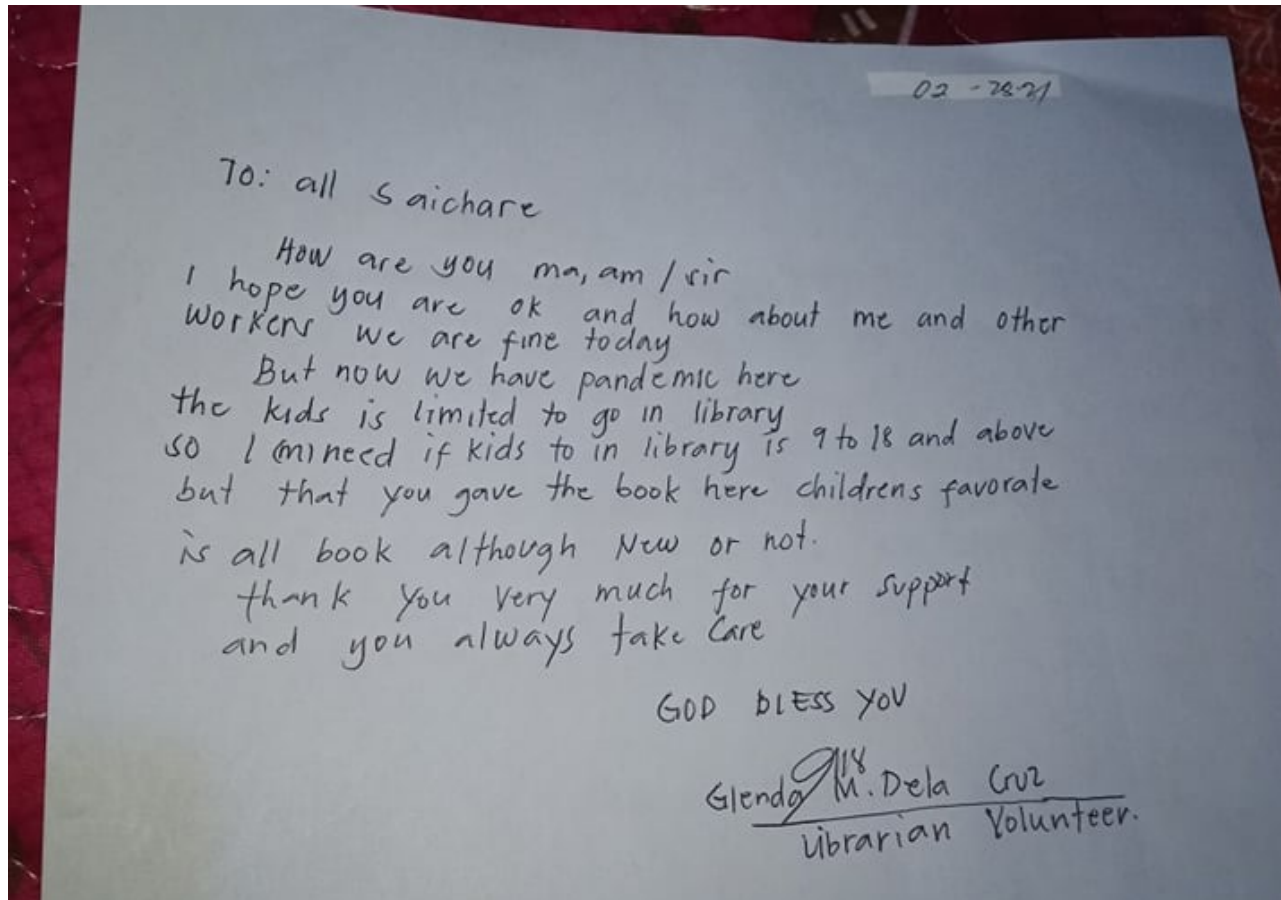 02 - 28-21
To: all saichare
How are you ma, am / sir
I hope you are ok and how about me and other
workers we are fine today
But now we have pandemic here
the kids is limited to go in library
so I (m) need if kids to in library is 9 to 18 and above
but that you gave the book here childrens favorate
is all book although New or not.
thank you very much for your support
and you always take Care
GOD BLESS YOU
Glenda M. Dela Cruz
Librarian Volunteer.